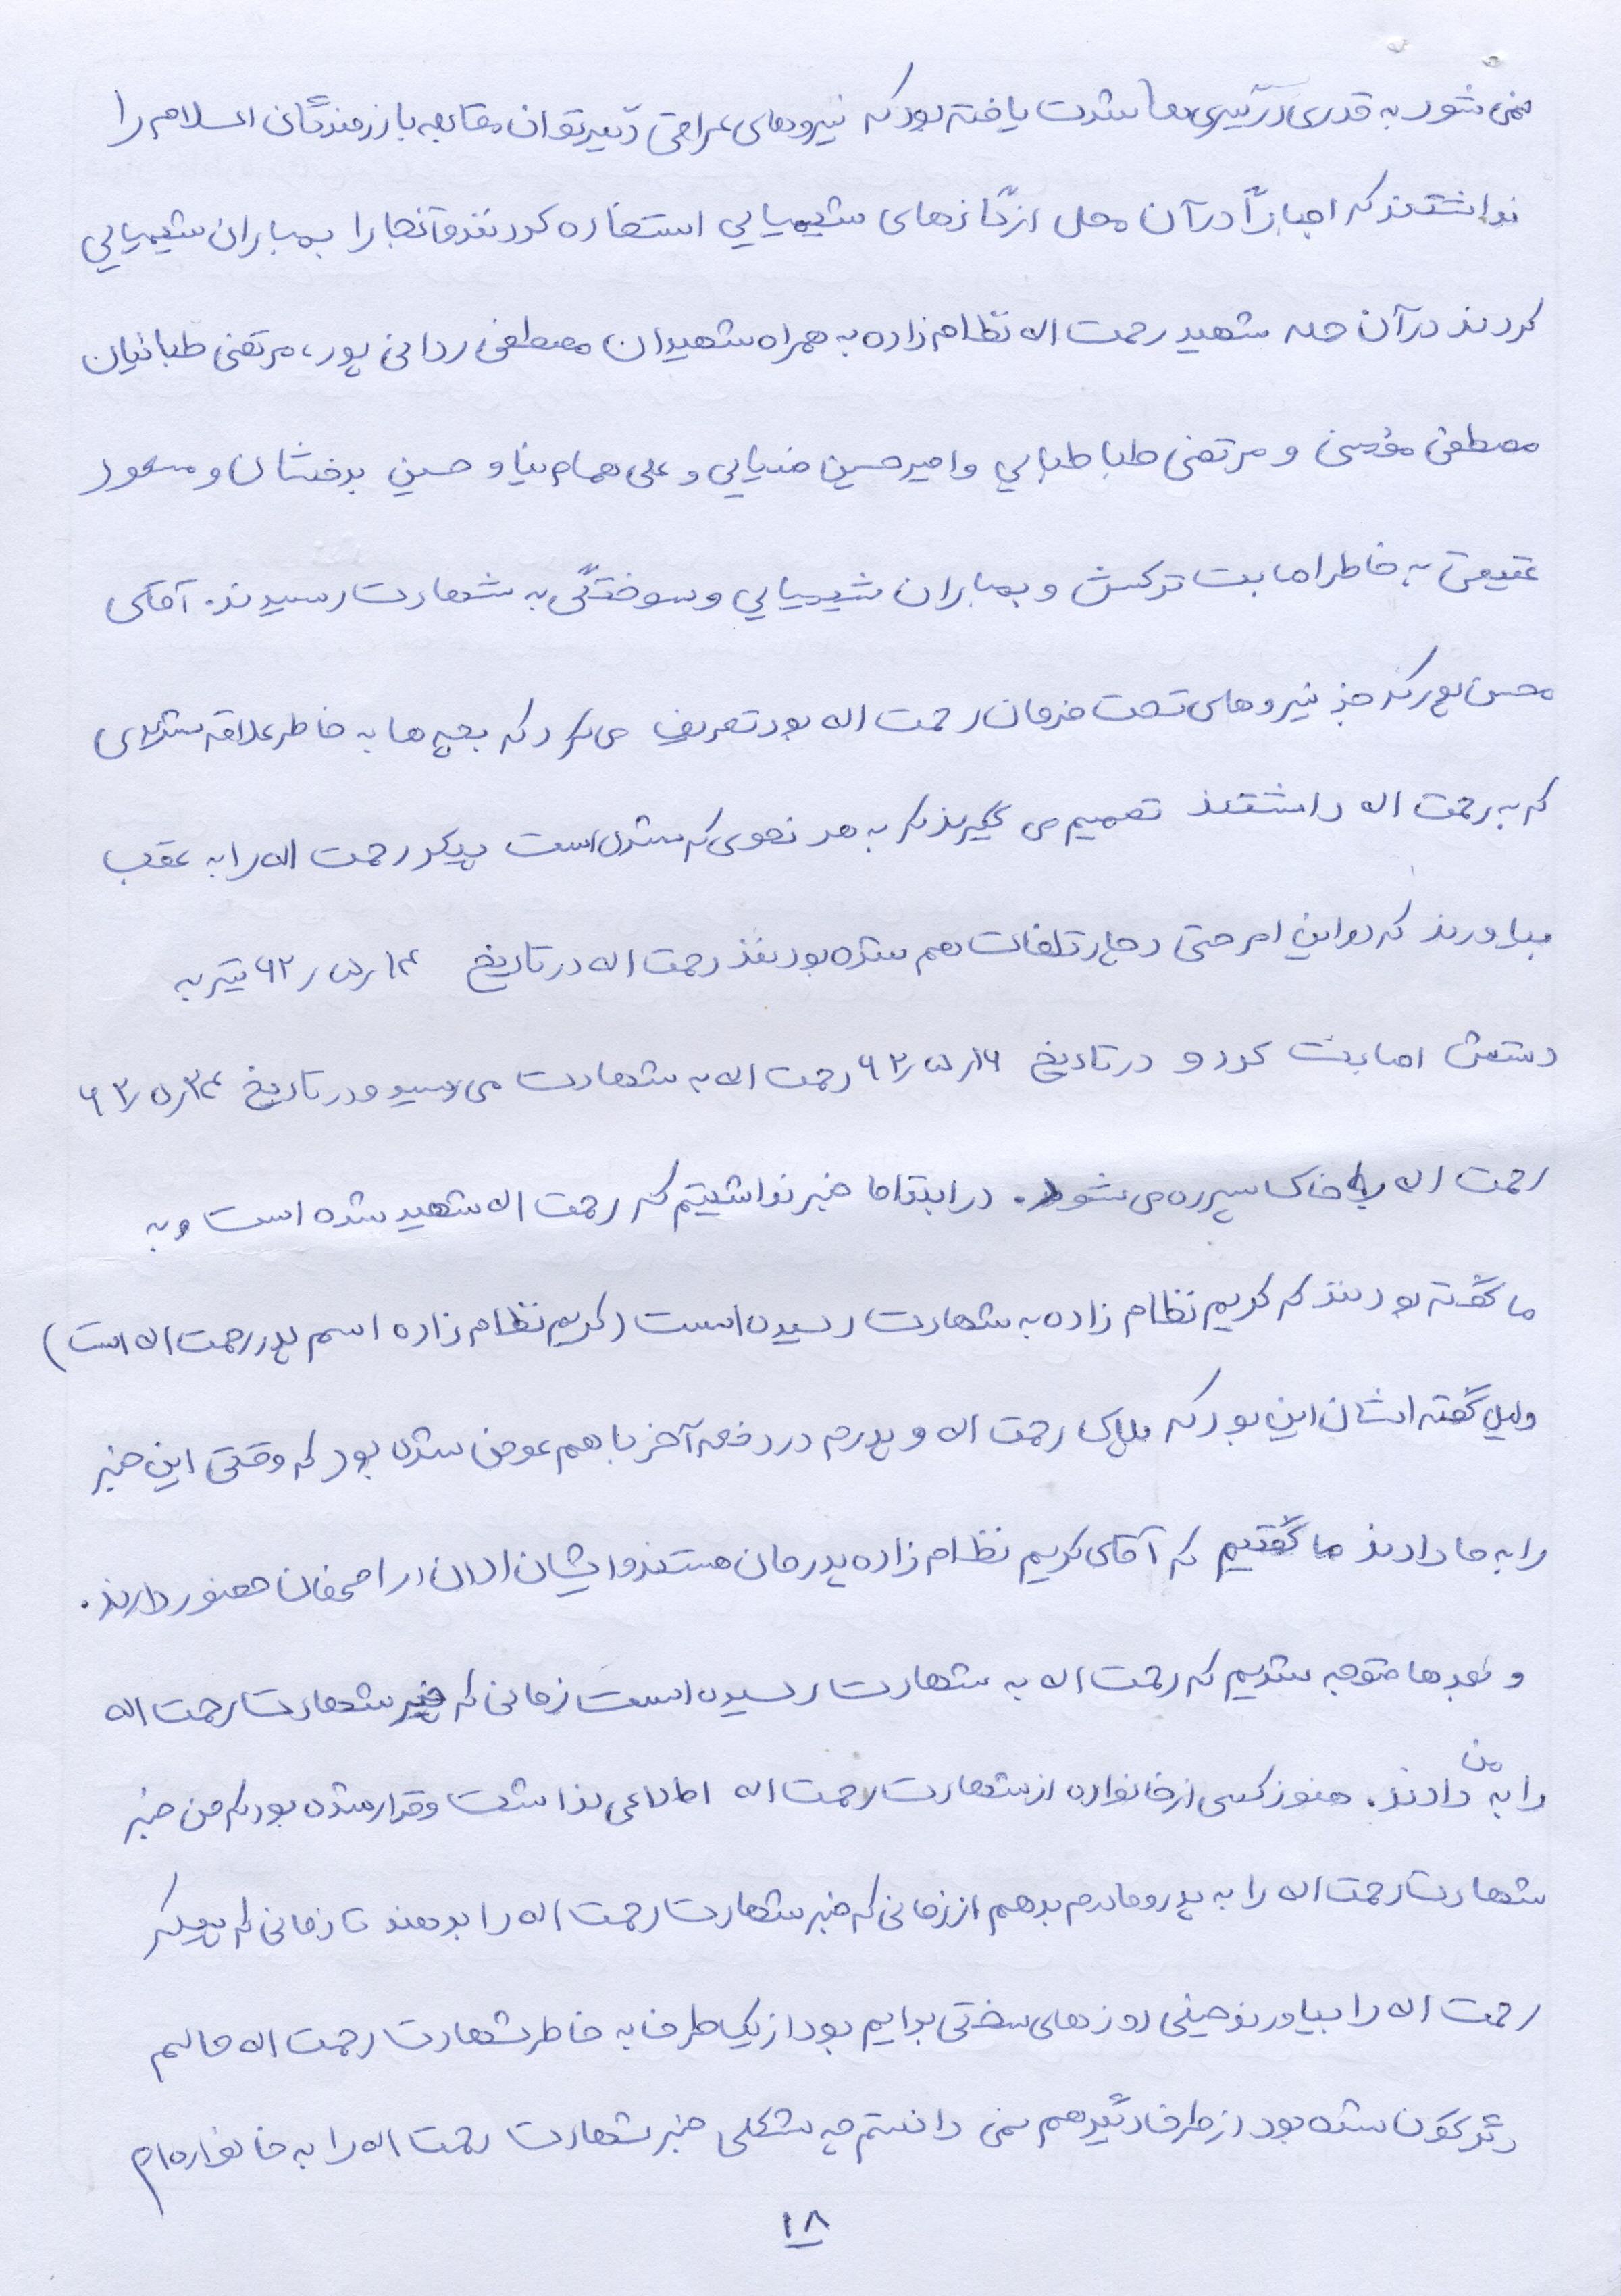 نمی شود به قدری درگیری ها شدت یافته بود که نیروهای عراقی دیگر توان مقابله با رزمندگان اسلام را
نداشتند که اجباراً در آن محل از گازهای شیمیایی استفاده کردند و آنجا را بمباران شیمیایی
کردند در آن حمله شهید رحمت اله نظام زاده به همراه شهیدان مصطفی ردانی پور، مرتضی طبائیان
مصطفی مؤمنی و مرتضی طباطبایی و امیرحسین ضیایی و علی همام نیا و حسین بدخشان و مسعود
عقیقی به خاطر اصابت ترکش و بمباران شیمیایی و سوختگی به شهادت رسیدند. آقای
محسن که جز نیروهای تحت فرمان رحمت اله بود تعریف می کرد که بچه ها به خاطر علاقه شدیدی
که به رحمت اله داشتند تصمیم می گیرند که به هر نحوی که شده است پیکر رحمت اله را به عقب
بیاورند که در این امر حتی دچار تلفات هم شده بودند رحمت اله در تاریخ ۶۲/۵/۱۴ تیر به
دستش اصابت کرد و در تاریخ ۶۲/۵/۱۶ رحمت اله به شهادت می رسید و در تاریخ ۶۲/۵/۲۴
رحمت اله به خاک سپرده می شود. در ابتدا ما خبر نداشتیم که رحمت اله شهید شده است و به
ما گفته بودند که کریم نظام زاده به شهادت رسیده است (کریم نظام زاده اسم پدر رحمت اله است)
دلیل گفته اشان این بود که پلاک رحمت اله و پدرم در دفعه آخر با هم عوض شده بود که وقتی این خبر
را به ما دادند ما گفتیم که آقای کریم نظام زاده پدرمان هستند و ایشان الان در اصفهان حضور دارند.
و بعدها متوجه شدیم که رحمت اله به شهادت رسیده است زمانی که خبر شهادت رحمت اله
را به من دادند. هنوز کسی از خانواده از شهادت رحمت اله اطلاعی نداشت و قرار شده بود که من خبر
شهادت رحمت اله را به پدر و مادرم بدهم از زمانی که خبر شهادت رحمت اله را بدهند تا زمانی که پیکر
رحمت اله را بیاورند خیلی روزهای سختی برایم بود از یک طرف به خاطر شهادت رحمت اله حالم
دگرگون شده بود از طرف دیگر هم نمی دانستم چه شکلی خبر شهادت رحمت اله را به خانواده ام
۱۸